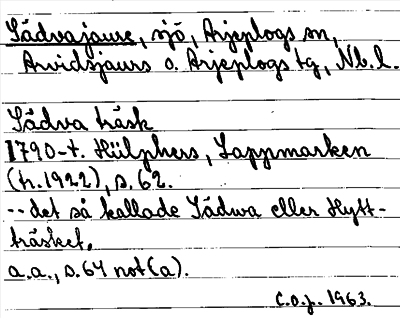 Sädvajaure, sjö, Arjeplogs sn,
Arvidsjaurs o. Arjeplogs tg, Nb.l.
Sädva träsk
1790-t. Hülphers, Lappmarken
(tr.1922), s.62.
--det så kallade Sädwa eller Hytt-
träsket.
a.a., s.64 not(a).
C.O.J. 1963.